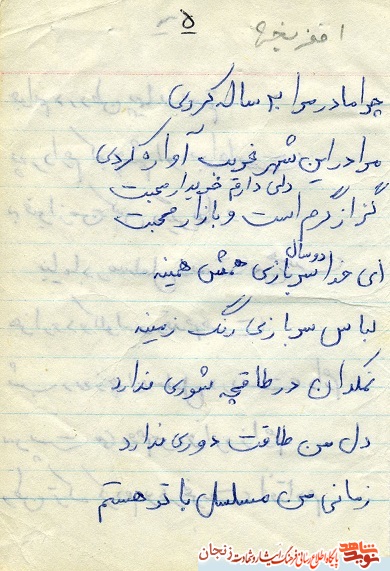 ۵
چرا مادر مرا ۲۰ ساله کردی
مرا در این شهر غریب آواره کردی
دلی دارم خریدار محبت
گز از گرم است و بازار محبت
ای خدا دو سال سربازی همش همینه
لباس سربازی رنگ زمینه
نمکدان در طاقچه شوری ندارد
دل من طاقت دوری ندارد
زمانی من مسلسل با تو هستم
نوید شاهد
پایگاه اطلاع رسانی فرهنگ ایثار و شهادت زنجان